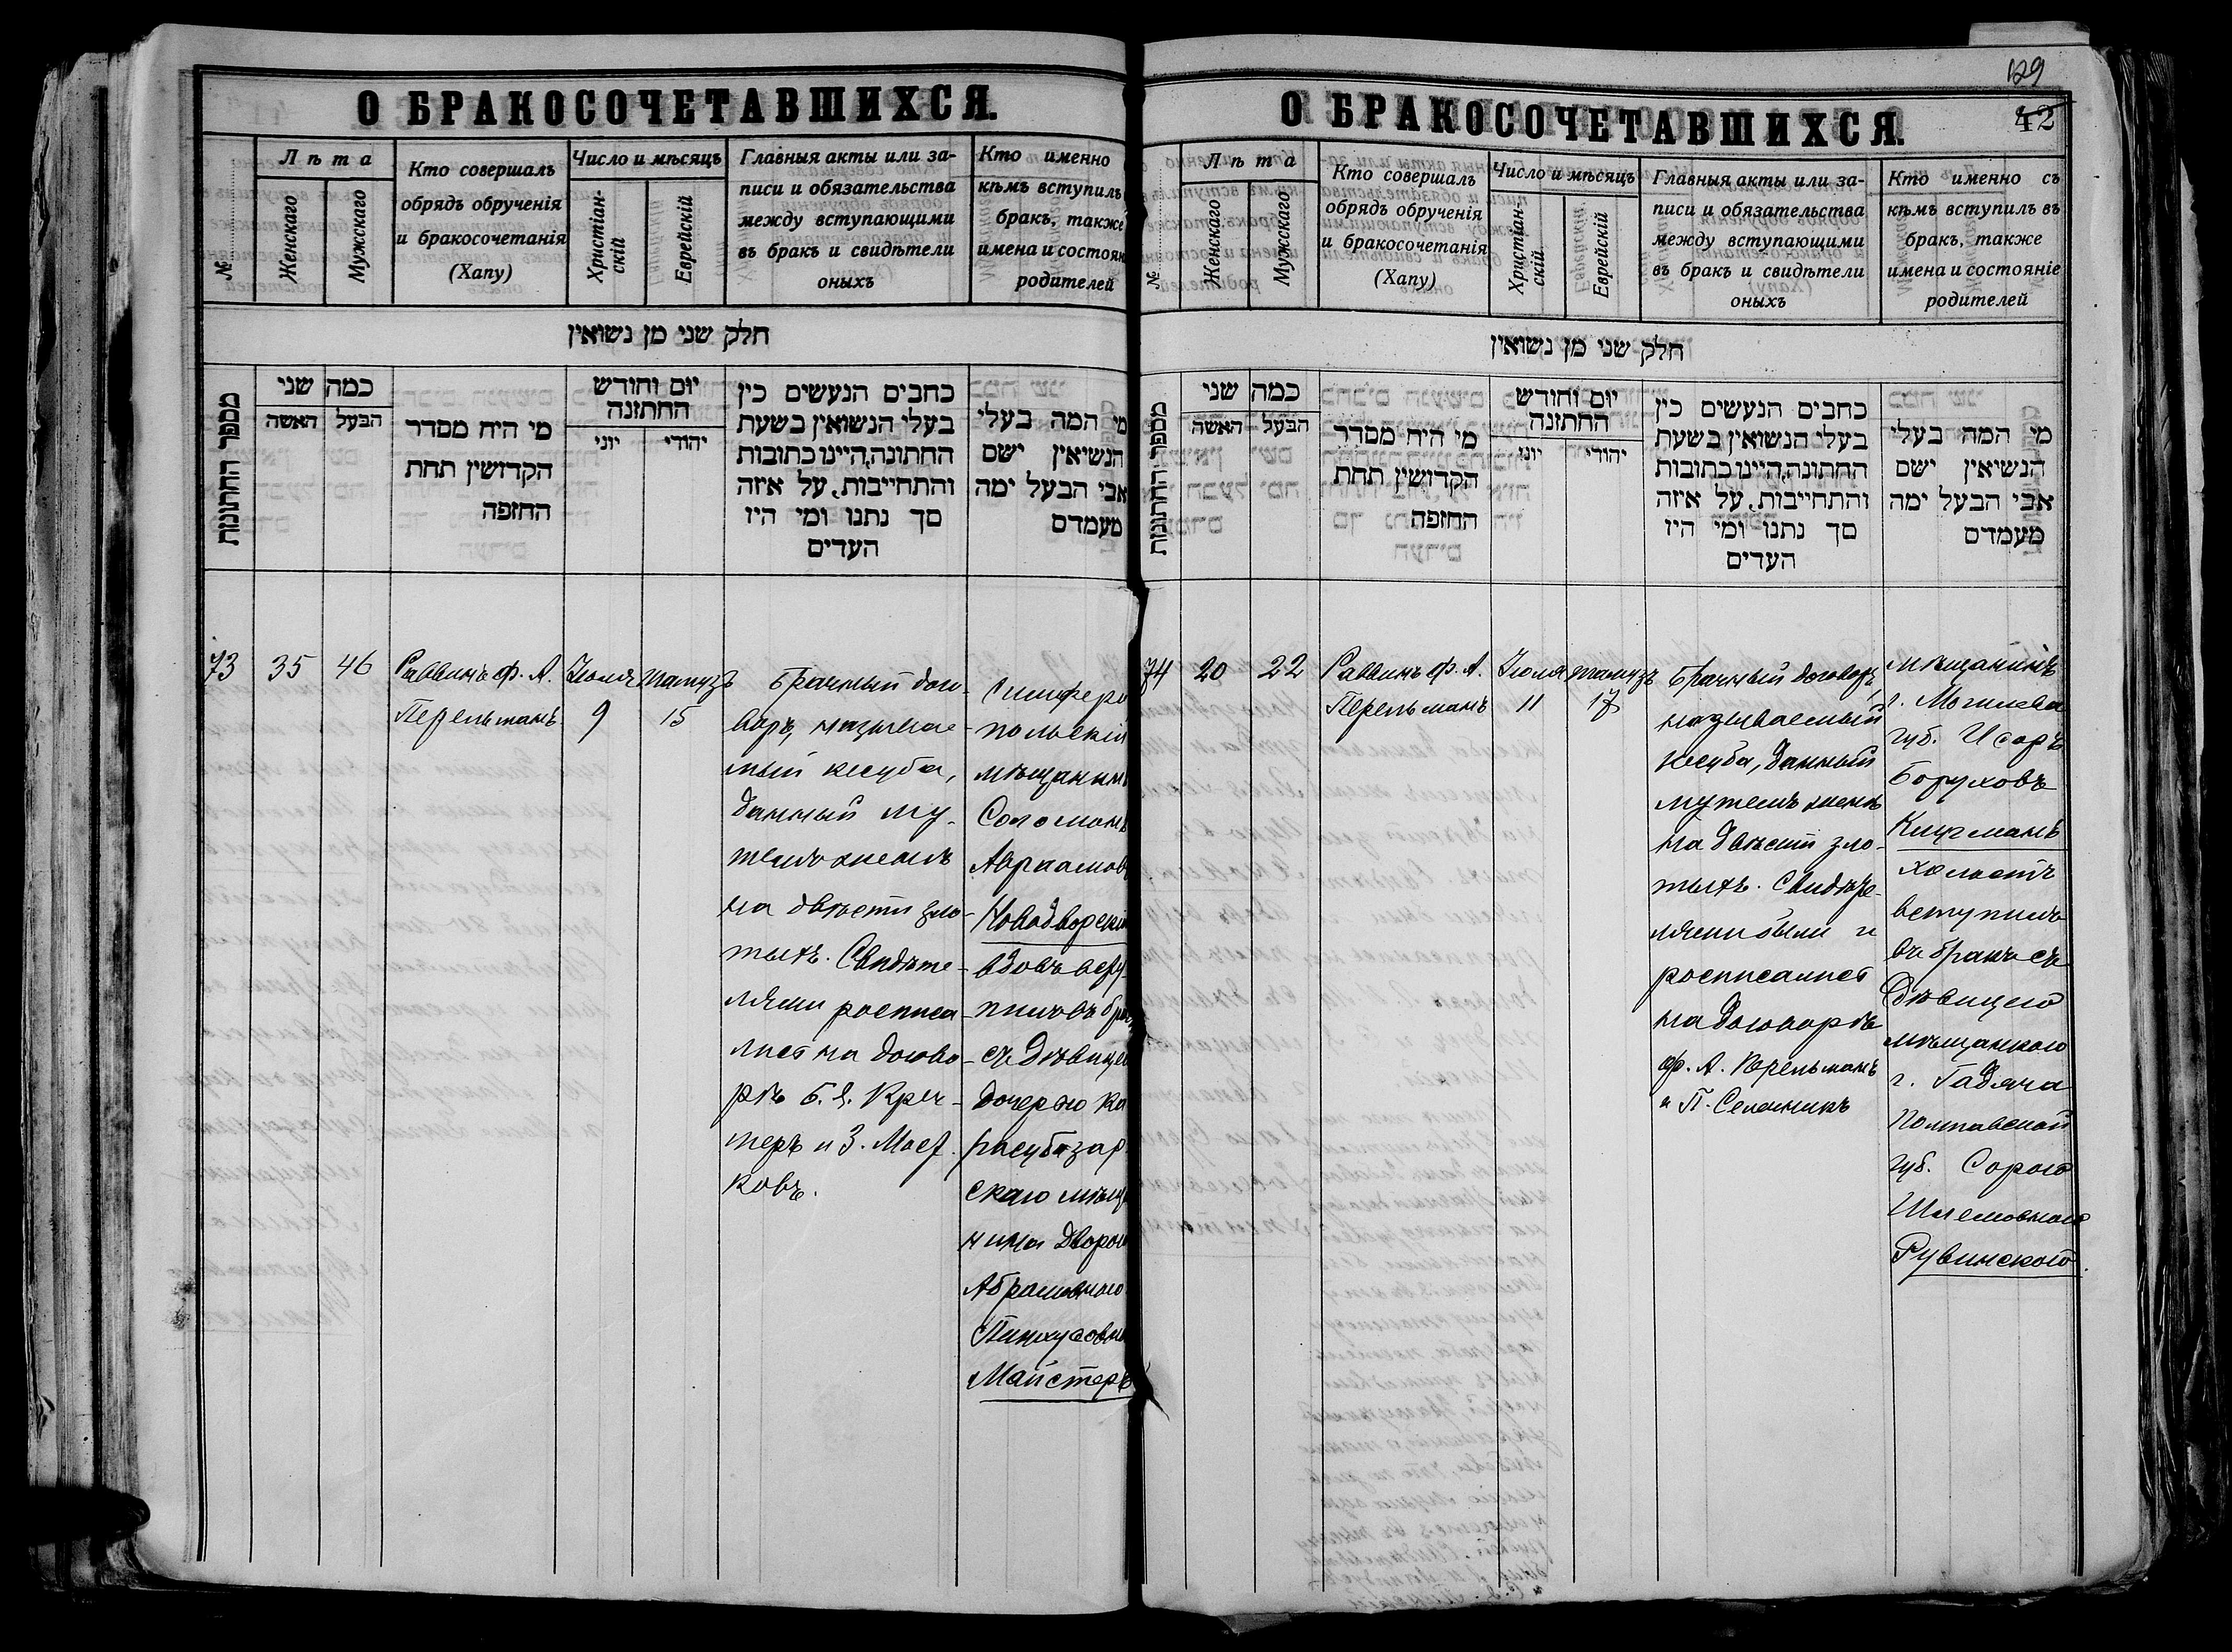 О БРАКОСОЧЕТАВШИХСЯ.
№
Лѣта
Женскаго
Мужскаго
Кто совершалъ
обрядъ обрученія
и бракосочетанія
(Хапу)
Число и мѣсяцъ
Христіан-
скій
Еврейскій
Главныя акты или за-
писи и обязательства
между вступающими
въ бракъ и свидѣтели
оныхъ
Кто именно
кѣмъ вступилъ
бракъ, также
имена и состоян
родителей
חלק שני מן נשואין
מספר החתונות
כמה שני
האשה
הבעל
מי היח מסדר
הקדושין תחת
החזפה
יום וחודש
החתונה
יוני
יהודי
כחבים הנעשים כין
בעלי הנשואין בשעת
החתונה, היינו כתובות
והתחייבות, על איזה
סך נתנו ומי היז
העדים
מי המה בעלי
הנשיאין ישם
אבי הבעל ימה
מעמדם
73
35
46
Раввинъ Ф. А.
Перельманъ.
Іюля
9
Тамузъ
15
Брачный дого-
воръ, называе-
мый кесуба,
данный му-
жемъ женѣ
на двѣсти зло-
тыхъ. Свидѣте-
лями росписа-
лись на догово-
рѣ Б. Я. Креч-
меръ и З. Мос
ковъ.
Симферо
польскій
мѣщанинъ
Соломонъ
Авраамовъ
Новодворскій
вдовъ всту-
пилъ въ бракъ
съ дѣвицею
дочерью Ка
расубазар
скаго мѣща
нина Дворою
Абрамовною
Пинхусовн
Майстеръ
О БРАКОСОЧЕТАВШИХСЯ.
129
42
№
Лѣта
Женскаго
Мужскаго
Кто совершалъ
обрядъ обрученія
и бракосочетанія
(Хапу)
Число и мѣсяцъ
Христіан-
скій
Еврейскій
Главныя акты или за-
писи и обязательства
между вступающими
въ бракъ и свидѣтели
оныхъ
Кто именно съ
кѣмъ вступилъ въ
бракъ, также
имена и состояніе
родителей
חלק שני מן נשואין
מספר החתונות
כמה שני
האשה
הבעל
מי היח מסדר
הקדושין תחת
החזפה
יום וחודש
החתזנה
יוני
יהודי
כחבים הנעשים כין
בעלי הנשואין בשעת
החתונה, היינו כתובות
והתחייבות, על איזה
סך נתנו ומי היז
העדים
מי המה בעלי
הנשיאין ישם
אבי הבעל ימה
מעמדם
74
20
22
Раввинъ Ф. А.
Перельманъ
Іюля
11
Тамузъ
17
Брачный договоръ,
называемый
кесуба, данный
мужемъ женѣ
на двѣсти зло-
тыхъ. Свидѣте-
лями были и
росписались
на договорѣ
Ф. А. Перельманъ
и П.
мѣщанинъ
г. Могилева
губ. Исоръ
Боруховъ
Кицгманъ
холостъ
вступилъ
въ бракъ съ
дѣвицею
мѣщанкою
г. Гадяча
Полтавской
губ. Сорою
Шлемовною
Рувинскою.